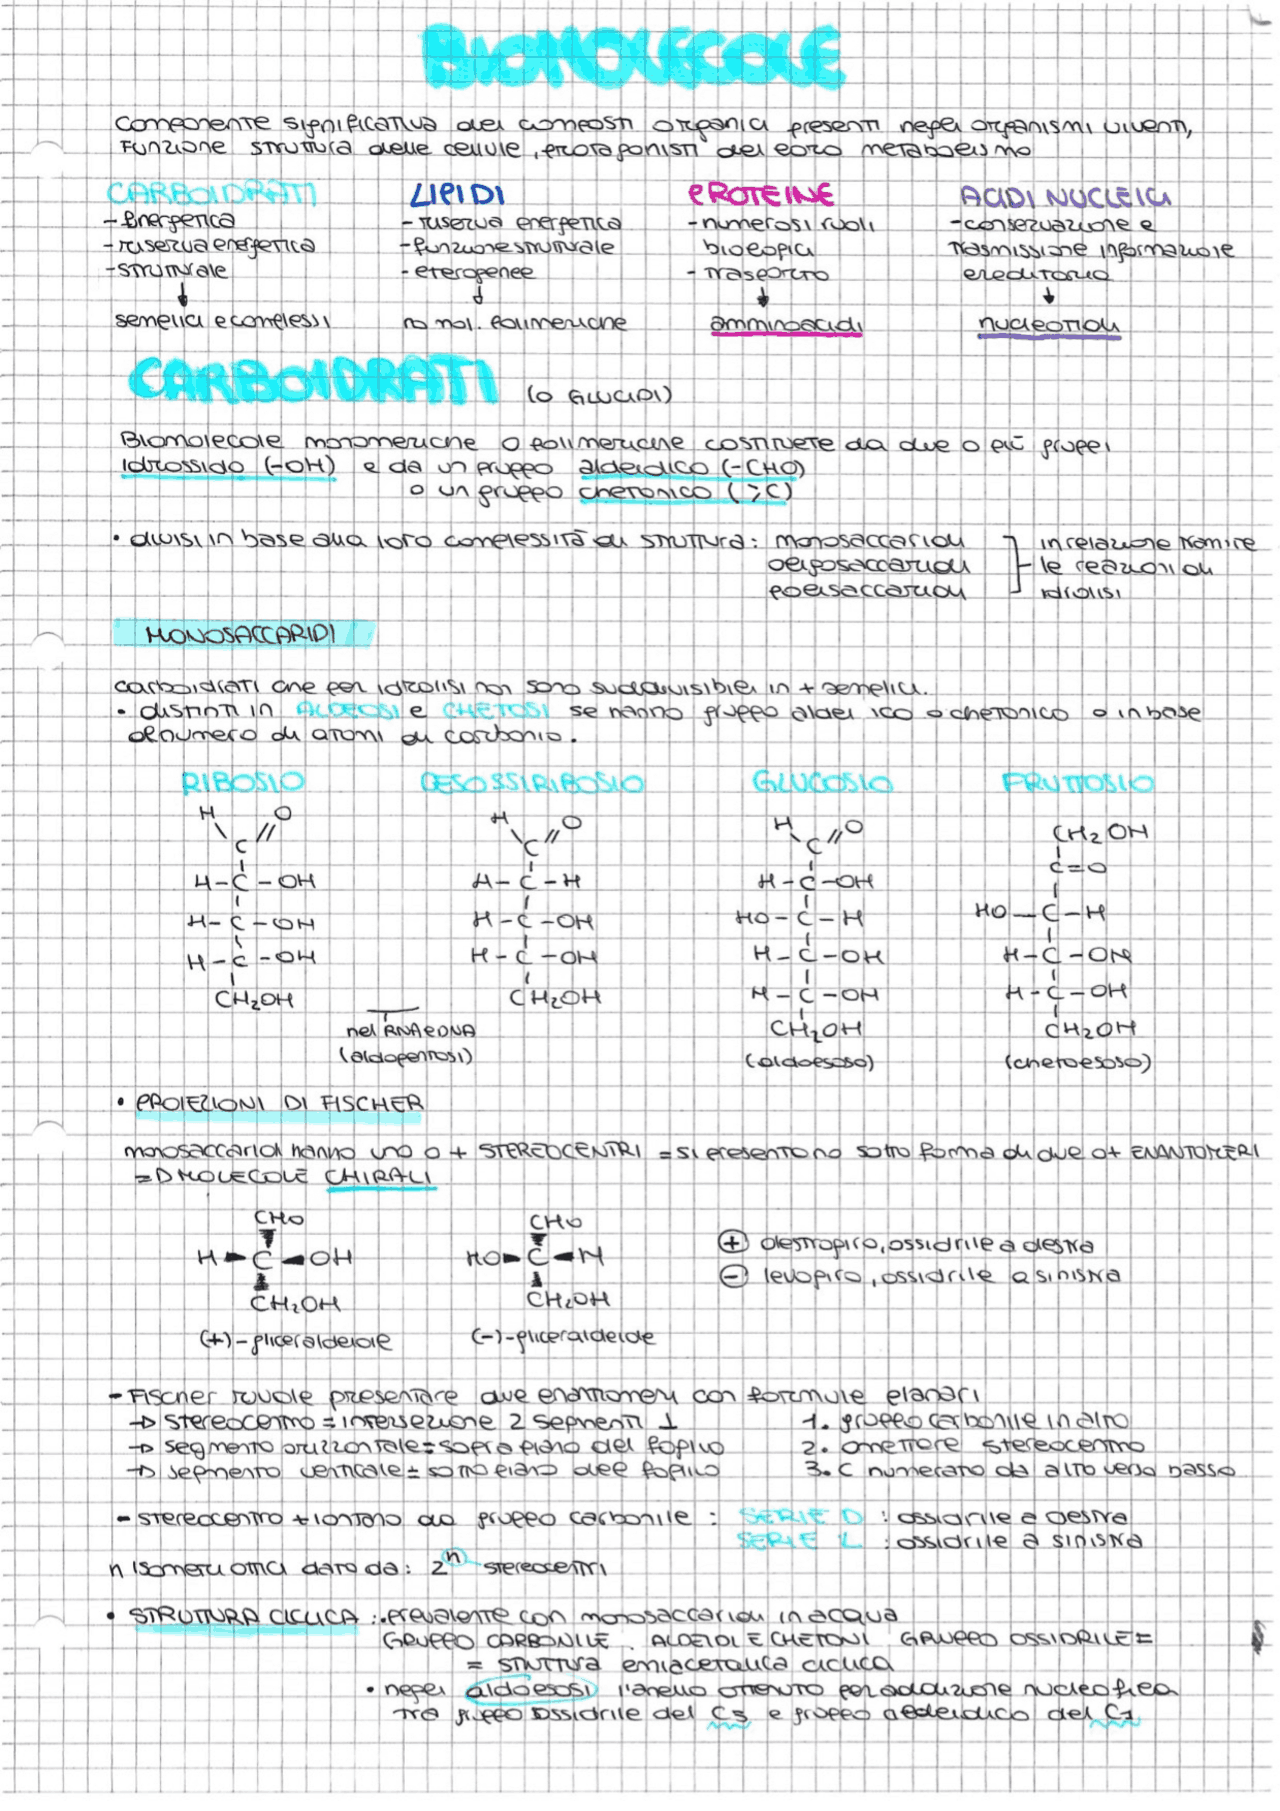 BIOMOLECOLE
componente significativa dei composti organici presenti negli organismi viventi,
funzione struttura delle cellule, protagonisti del loro metabolismo
CARBOIDRATI LIPIDI PROTEINE ACIDI NUCLEICI
- Energetica - riserva energetica - numerosi ruoli - conservazione e
- riserva energetica - funzione strutturale biologici trasmissione informazione
- strutturale - eterogenee - trasporto ereditaria
↓ ↓ ↓ ↓
semplici e complessi no mol. polimeriche amminoacidi nucleotidi
CARBOIDRATI (o GLUCIDI)
Biomolecole monomeriche o polimeriche costituite da due o più gruppi
idrossido (-OH) e da un gruppo aldeidico (-CHO)
o un gruppo chetonico (>C)
• divisi in base alla loro complessità di struttura: monosaccaridi in relazione tramite
oligosaccaridi le reazioni di
polisaccaridi idrolisi
MONOSACCARIDI
carboidrati che per idrolisi non sono suddivisibili in + semplici.
• distinti in ALDEOSI e CHETOSI se hanno gruppo aldei ico o chetonico o in base
al numero di atomi di carbonio.
RIBOSIO DESOSSIRIBOSIO GLUCOSIO FRUTTOSIO
H O H O H O CH₂OH
C C C C=O
H-C-OH H-C-H H-C-OH HO-C-H
H-C-OH H-C-OH HO-C-H H-C-OH
H-C-OH H-C-OH H-C-OH H-C-OH
CH₂OH CH₂OH H-C-OH CH₂OH
nel RNA e DNA CH₂OH
(aldopentosi) (aldoesoso) (chetoesoso)
• PROIEZIONI DI FISCHER
monosaccaridi hanno uno o + STEREOCENTRI = si presentano sotto forma di due o + ENANTOMERI
=D MOLECOLE CHIRALI
CHO CHO
H C OH HO C H
CH₂OH CH₂OH
(+)-gliceraldeide (-)-gliceraldeide
⊕ destrogiro, ossidrile a destra
⊖ levogiro, ossidrile a sinistra
- Fischer vuole presentare due enantiomeri con formule planari
→ stereocentro = intersezione 2 segmenti ⊥ 1. gruppo carbonile in alto
→ segmento orizzontale = sopra piano del foglio 2. omettere stereocentro
→ segmento verticale = sotto piano del foglio 3. C numerano da alto verso basso
- stereocentro + lontano da gruppo carbonile : SERIE D : ossidrile a destra
SERIE L : ossidrile a sinistra
n isomeri ottici dato da: 2ⁿ stereocentri
• STRUTTURA CICLICA : . prevalente con monosaccaridi in acqua
GRUPPO CARBONILE . ALDEIDI E CHETONI GRUPPO OSSIDRILE =
= struttura emiacetalica ciclica
• negli aldoesosi l'anello ottenuto per addizione nucleofila
tra gruppo ossidrile del C5 e gruppo aldeidico del C1